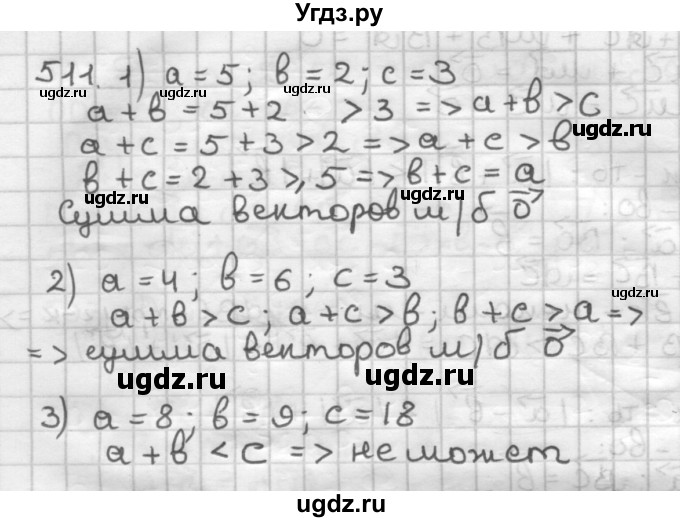 Угдз.ру
511. 1) a = 5; b = 2; c = 3
ugdz.ru ugdz.ru ugdz.ru
a + b = 5 + 2 > 3 => a + b > c
ugdz.ru
a + c = 5 + 3 > 2 => a + c > b
b + c = 2 + 3 ⩾ 5 => b + c = a
ugdz.ru ugdz.ru
Сумма векторов м/б 0⃗
2) a = 4; b = 6; c = 3
ugdz.ru ugdz.ru
a + b > c; a + c > b; b + c > a =>
=> сумма векторов м/б 0⃗
ugdz.ru ugdz.ru
3) a = 8; b = 9; c = 18
ugdz.ru
a + b < c => не может
ugdz.ru ugdz.ru
ugdz.ru